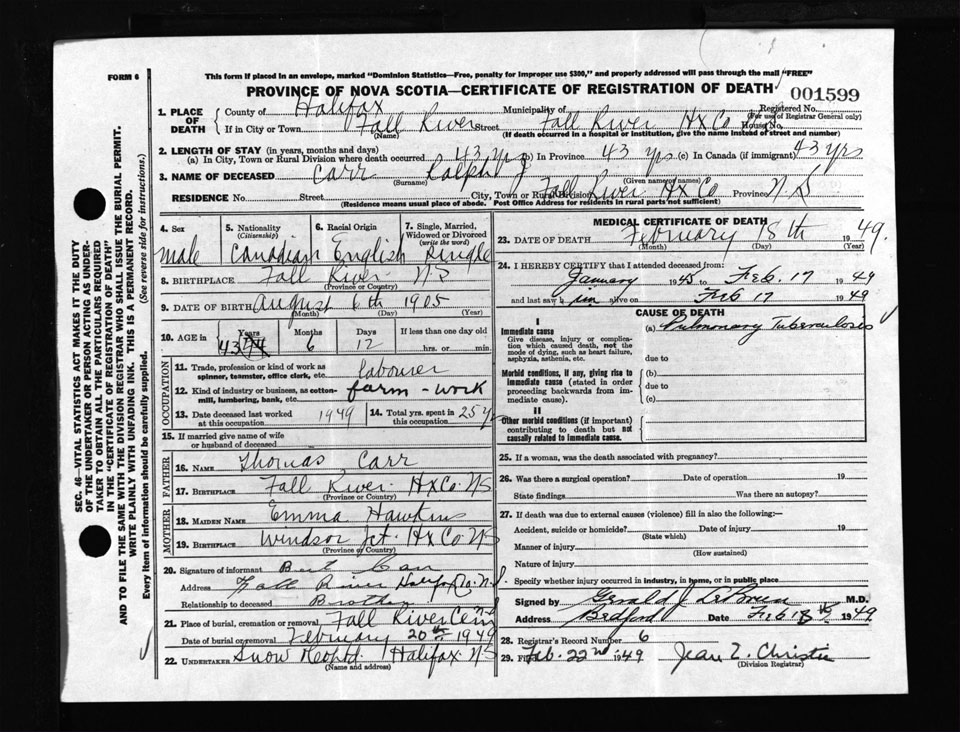 FORM 6
This form if placed in an envelope, marked "Dominion Statistics—Free, penalty for improper use $300," and properly addressed will pass through the mail "FREE"
PROVINCE OF NOVA SCOTIA—CERTIFICATE OF REGISTRATION OF DEATH
001599
1. PLACE OF DEATH
County of Halifax Municipality of Registered No.
(For use of Registrar General only)
If in City or Town Fall River Street Fall River Hx Co N.S. House No.
(Name) (If death occurred in a hospital or institution, give the name instead of street and number)
2. LENGTH OF STAY (in years, months and days)
(a) In City, Town or Rural Division where death occurred 43 yrs (b) In Province 43 yrs (c) In Canada (if immigrant) 43 yrs
3. NAME OF DECEASED Carr Ralph J
(Surname) (Given name or names)
RESIDENCE No. Street City, Town or Rural Division Fall River Hx Co Province N S
(Residence means usual place of abode. Post Office Address for residents in rural parts not sufficient)
4. Sex 5. Nationality (Citizenship) 6. Racial Origin 7. Single, Married, Widowed or Divorced (write the word)
male Canadian English single
8. BIRTHPLACE Fall River NS
(Province or Country)
9. DATE OF BIRTH August 6th 1905
(Month) (Day) (Year)
10. AGE in Years Months Days If less than one day old
43 6 12 hrs. or min.
OCCUPATION
11. Trade, profession or kind of work as spinner, teamster, office clerk, etc. labourer
12. Kind of industry or business, as cotton-mill, lumbering, bank, etc. farm - work
13. Date deceased last worked at this occupation 1949 14. Total yrs. spent in this occupation 25 yrs
15. If married give name of wife or husband of deceased
FATHER
16. NAME Thomas Carr
17. BIRTHPLACE Fall River Hx Co. NS
(Province or Country)
MOTHER
18. MAIDEN NAME Emma Hawkins
19. BIRTHPLACE Windsor Jct. Hx Co NS
(Province or Country)
20. Signature of informant Bert Carr
Address Fall River Halifax Co. N.S
Relationship to deceased Brother
21. Place of burial, cremation or removal Fall River Cem NS
Date of burial or removal February 20th 1949
22. UNDERTAKER Snow Halifax NS
(Name and address)
MEDICAL CERTIFICATE OF DEATH
23. DATE OF DEATH February 18th 1949.
(Month) (Day) (Year)
24. I HEREBY CERTIFY that I attended deceased from:
January 1945 to Feb. 17 1949
and last saw him alive on Feb 17 1949
CAUSE OF DEATH
I
Immediate cause
Give disease, injury or complication which caused death, not the mode of dying, such as heart failure, asphyxia, asthenia, etc.
(a) Pulmonary Tuberculosis
due to
Morbid conditions, if any, giving rise to immediate cause (stated in order proceeding backwards from immediate cause).
(b)
due to
(c)
II
Other morbid conditions (if important) contributing to death but not causally related to immediate cause.
25. If a woman, was the death associated with pregnancy?
26. Was there a surgical operation? Date of operation 19
State findings Was there an autopsy?
27. If death was due to external causes (violence) fill in also the following:—
Accident, suicide or homicide? Date of injury 19
(State which)
Manner of injury
(How sustained)
Nature of injury
Specify whether injury occurred in industry, in home, or in public place
Signed by Gerald J. LeBrun M.D.
Address Bedford Date Feb 18th 1949
28. Registrar's Record Number 6
29. Filed Feb. 22nd 1949 Jean Z. Christie
(Division Registrar)
SEC. 46—VITAL STATISTICS ACT MAKES IT THE DUTY
OF THE UNDERTAKER OR PERSON ACTING AS UNDER-
TAKER TO OBTAIN ALL THE PARTICULARS REQUIRED
IN THE "CERTIFICATE OF REGISTRATION OF DEATH"
AND TO FILE THE SAME WITH THE DIVISION REGISTRAR WHO SHALL ISSUE THE BURIAL PERMIT.
WRITE PLAINLY WITH UNFADING INK. THIS IS A PERMANENT RECORD.
Every item of information should be carefully supplied. (See reverse side for instructions.)